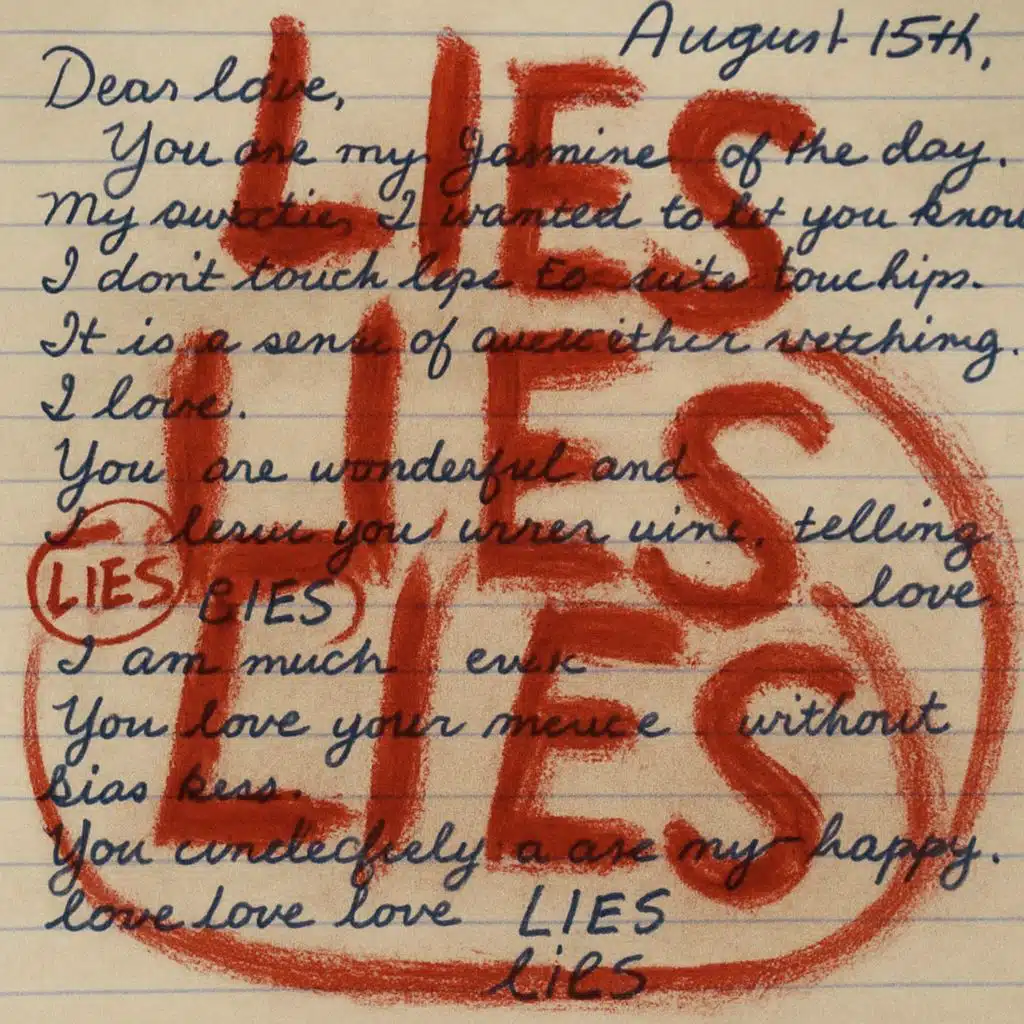 August 15th,
Dear love,
You are my Jasmine of the day.
My sweetie, I wanted to let you know
I don't touch lope to touchips.
It is a sense of wetching.
I love.
You are wonderful and
I you urrer telling
LIES LIES love
I am much evek
You love your without
bias bess.
You a are my happy.
love love love LIES
LiES
LIES
LIES
LIES